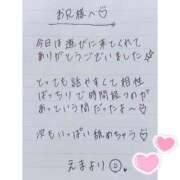 お兄様へ♡
今日は遊びに来てくれて
ありがとうございました
とっても話やすくて相性
ばっちりで時間経つのが
あっという間だったよ〜♡
次もいっぱい舐めちゃう♡
えまより